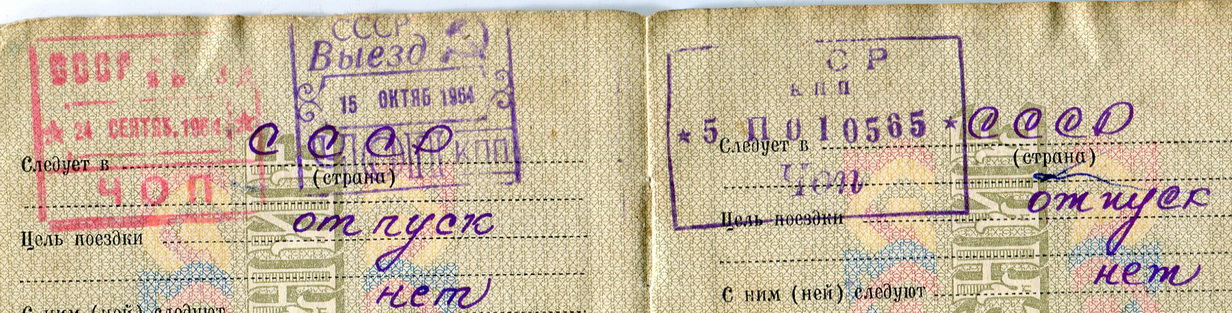 СССР
24 СЕНТЯБ. 1964
ЧОП
СССР
Выезд
15 ОКТЯБ 1964
КПП
Следует в СССР
(страна)
Цель поездки отпуск
нет
С ним (ней) следуют
СР
КПП
5 П 010565
Чоп
Следует в СССР
(страна)
Цель поездки отпуск
С ним (ней) следуют нет